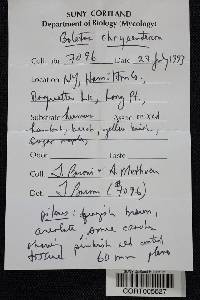 SUNY CORTLAND
Department of Biology (Mycology)
Boletus chrysenteron
Coll. no 7096 Date 23 July 1993
Location NY, Hamilton Co.
Raquette Lk, Long Pt.,
Substrate humus in mixed
hemlock, beech, yellow birch,
sugar maple,
Odor Taste
Coll T. Baroni & A. Methven
Det. T. Baroni (# 7096)
pileus: grayish brown,
areolate some cracks
showing pinkish red context
tissue 60 mm
SUNY Cortland
CORT005627